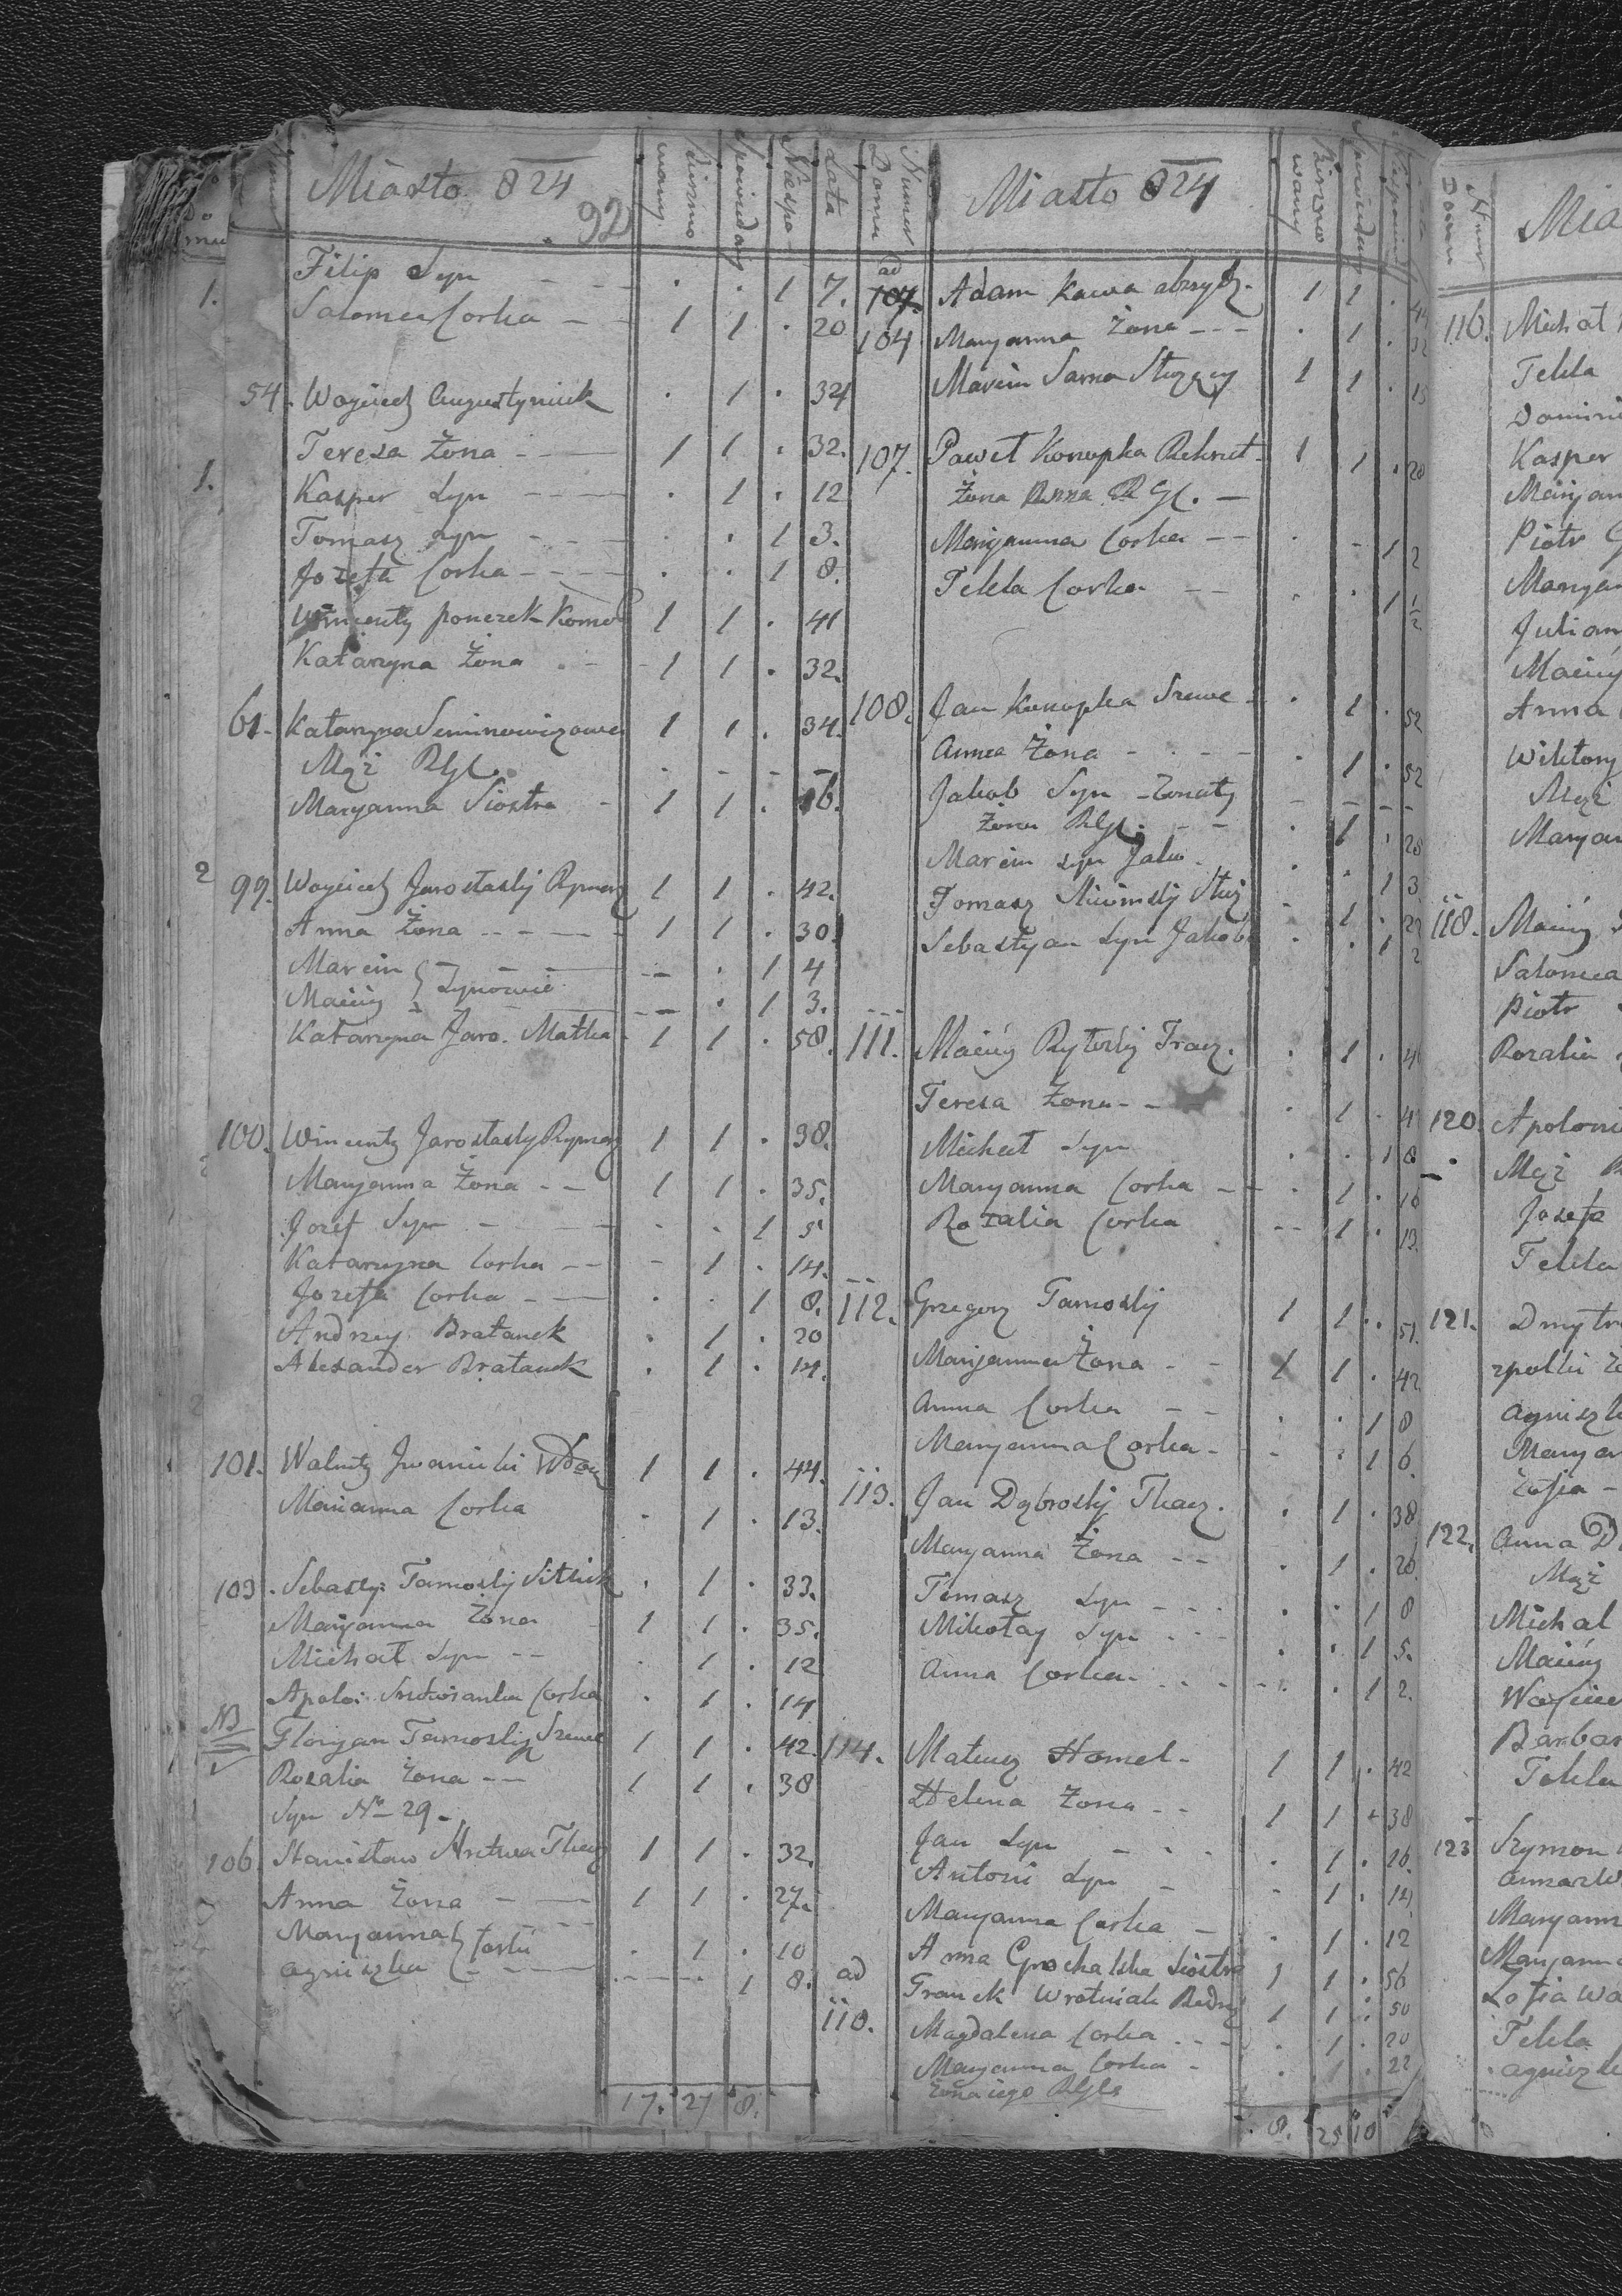 Miasto 824
92
Bierzmo
wany
Spowieday
Niespo
Lata
Filip Syn — — . . 1 7.
Salomea Corka — — 1 1 . 20
54. Woyciech Augustyniick . 1 . 34
Teresa Żona — — 1 1 . 32.
Kasper Syn — — . 1 . 12
Tomasz Syn — — . . 1 3.
Jozefa Corka — — . . 1 8.
Wincenty ponczek Komo 1 1 . 41
Katarzyna Żona . — 1 1 . 32.
61. Katarzyna 1 1 . 34.
Mąż RGł.
Maryanna Siostra - 1 1 . 16.
99. Woyciech Jarosławsky Rymarz 1 1 . 42.
Anna Żona — — 1 1 . 30.
Marcin — — . 1 4
Maciey } Synowie — . 1 3.
Katarzyna Jaro. Matka 1 1 . 58.
100. Wincenty Jarostasky Rymarz 1 1 . 38.
Maryanna Żona — 1 1 . 35.
Jozef Syn — — . . 1 5
Katarzyna Corka — - 1 . 14.
Jozefa Corka — . . 1 8.
Andrzey Bratanek . 1 . 20
Alexander Bratanek . 1 . 14.
101. Walenty Jwanicki Wdow 1 1 . 44.
Marianna Corka . 1 . 13.
103. Sebasty. Tarnosky Sitnik . 1 . 33.
Maryanna Żona 1 1 . 35.
Michał Syn — . 1 . 12
Apolo. Corka . 1 . 14
NB
Floryan Tarnosky Szewc 1 1 . 42.
Rozalia Żona — 1 1 . 38
Syn No 29.
106. Stanisław Tkacz 1 1 . 32.
Anna Żona — 1 1 . 27.
Maryanna } Corki . 1 . 10
Agniszka — . 1 8.
17. 27 8.
Numer
Domu
Miasto 824
Bierzmo
wany
ad
107. Adam Kawa 1 1 . 44
104 Maryanna Żona — . 1 . 32
Marcin Sarna Służący 1 1 . 15
107. Paweł Konopka Rekrut 1 1 . 20
Żona Anna RGł. —
Maryanna Corka — . - 1 2
Tekla Corka — . . 1 1/2
108. Jan Konopka Szewc . 1 . 52
Anna Żona . 1 . 52
Jakob Syn Zonaty - - - -
Żona RGł. — . 1 . 28
Marcin Syn Jako. . . 1 3.
Tomasz Służ - 1 . 22
Sebastyan Syn Jakob . . 1 2
111. Maciey Rytwsky Tracz. . 1 . 4
Teresa Żona — . 1 . 4
Michał Syn . . 1 8
Maryanna Corka — . 1 . 16
Rozalia Corka -- 1 . 13.
112. Grzegorz Tarnosky 1 1 . 51.
Maryanna Żona - 1 1 . 42.
Anna Corka — . . 1 8
Maryanna Corka - - . 1 6.
113. Jan Dąbrosky Tkacz. . 1 . 38
Maryanna Żona — . 1 . 28
Tomasz Syn — . . 1 8
Mikołay Syn . . 1 5.
Anna Corka . . 1 2.
114. Mateusz Homel - 1 1 . 42
Helena Żona - 1 1 . 38
Jan Syn — . 1 . 16.
Antoni Syn - - 1 . 14
Maryanna Corka — . 1 . 12
Anna Grochalska Siostra 1 1 . 56
ad
110. Franek Wrotniak Bedn 1 1 . 50
Magdalena Corka . 1 . 20
Maryanna Corka - . 1 . 22
Żona iego RGłs
8. 25 10
Numer
Domu
Mia
116. Michał
Tekla
Domini
Kasper
Maryan
Piotr
Maryan
Julian
Maciey
Anna
Wiktory
Mąż
Maryan
118. Maciey
Salomea
Piotr
Rozalia
120. Apolonia
Mąż
Jozefa
Tekla
121. Dmytr
Agniszk
Maryan
Zofia —
122. Anna D
Mąż
Michal
Maciey
Woyciec
Barbar
Tekla
123 Szymon
Maryann
Maryanna
Zofia Wa
Tekla
Agniszk